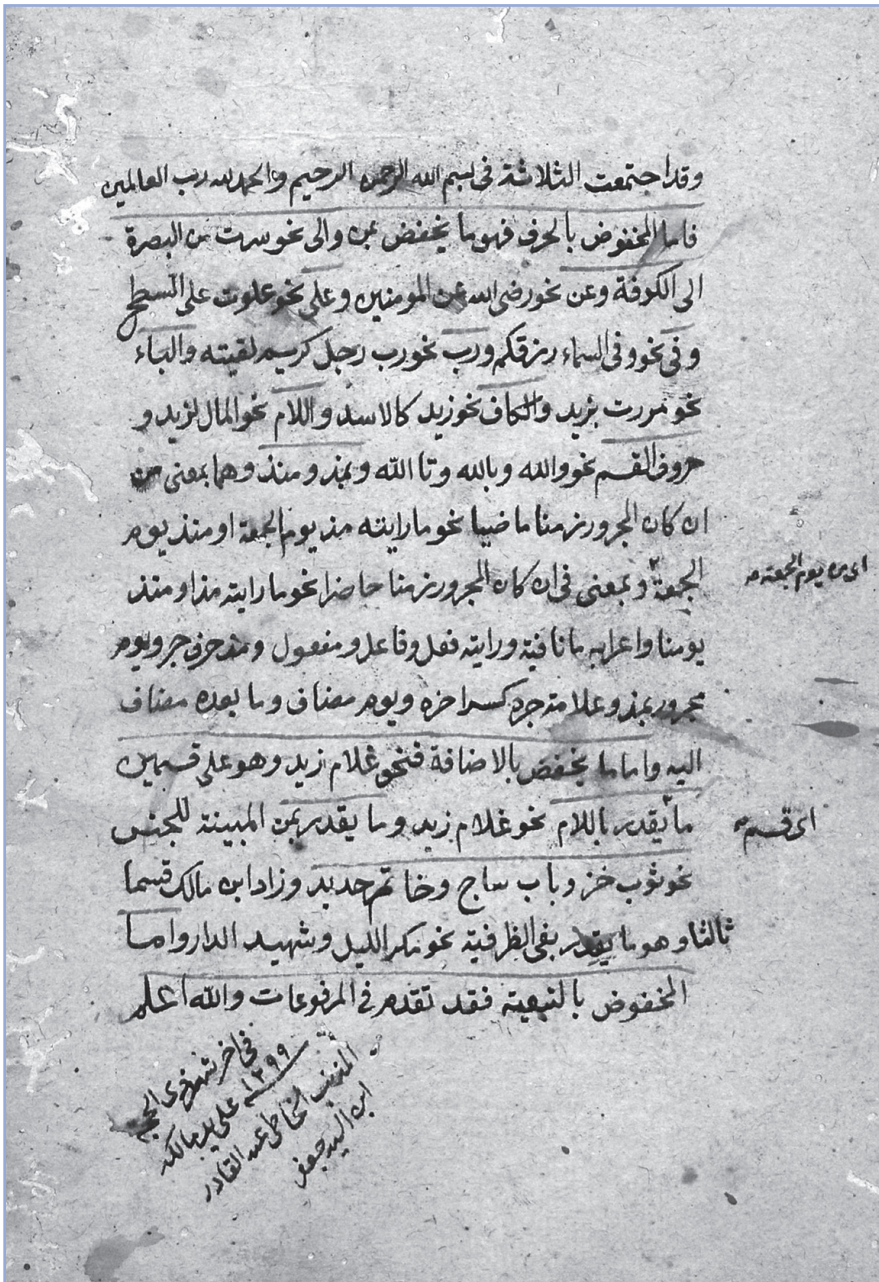 وقد اجتمعت الثلاثة فى بسم الله الرحمن الرحيم والحمد لله رب العالمين
فاما المخفوض بالحرف فهو ما يخفض بمن والى نحو سرت من البصرة
الى الكوفة وعن نحو رضى الله عن المومنين وعلى نحو علوت على السطح
وفى نحو وفى السماء رزقكم ورب نحو رب رجل كريم لقيته والباء
نحو مررت بزيد والكاف نحو زيد كالاسد واللام نحو المال لزيد و
حروف القسم نحو والله وبالله وتا الله وبمذ ومنذ وهما بمعنى من
ان كان المجرور زمنا ماضيا نحو ما رايته مذ يوم الجمعة او منذ يوم
الجمعة وبمعنى فى ان كان المجرور زمنا حاضرا نحو ما رايته مذ او منذ
اى من يوم الجمعة
يومنا واعرابه ما نافية ورايته فعل وفاعل ومفعول ومذ حرف جر ويوم
مجرور بمذ وعلامة جره كسر اخره ويوم مضاف وما بعده مضاف
اليه واما ما يخفض بالاضافة فنحو غلام زيد وهو على قسمين
ما يقدر باللام نحو غلام زيد وما يقدر بمن المبينة للجنس
اى قسم
نحو ثوب خز وباب ساج وخاتم حديد وزاد ابن مالك قسما
ثالثا وهو ما يقدر بفى الظرفية نحو مكر الليل وشهيد الدار واما
المخفوض بالتبعية فقد تقدم فى المرفوعات والله اعلم
فى اخر شهر ذى الحجة
١٢٩٩ على يد مالكه
المذنب الخاطى عبد القادر
ابن السيد جعفر